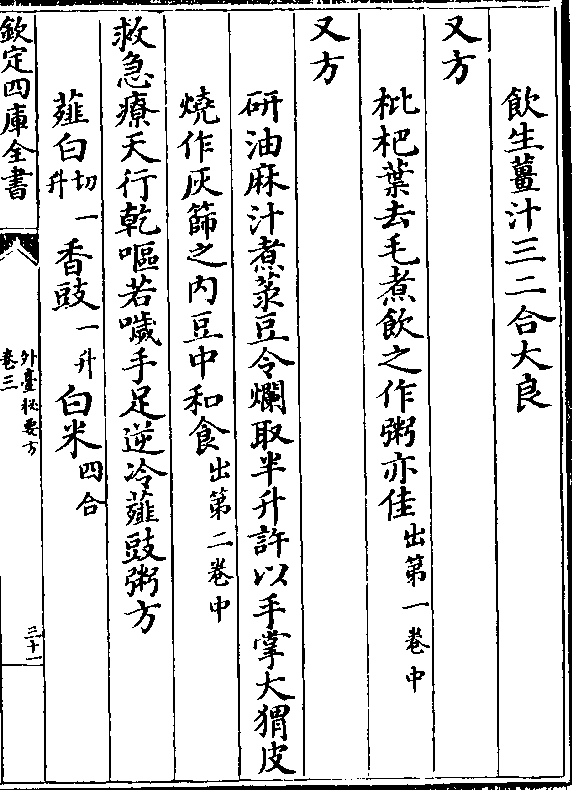 飲生薑汁三二合大良
又方
枇杷葉去毛煮飲之作粥亦佳出第一卷中
又方
研油麻汁煮菉豆令爛取半升許以手掌大猬皮
燒作灰篩之内豆中和食出第二卷中
救急療天行乾嘔若噦手足逆冷薤豉粥方
薤白切一升香豉一升白米四合
欽定四庫全書
外臺秘要方
卷三
三十一